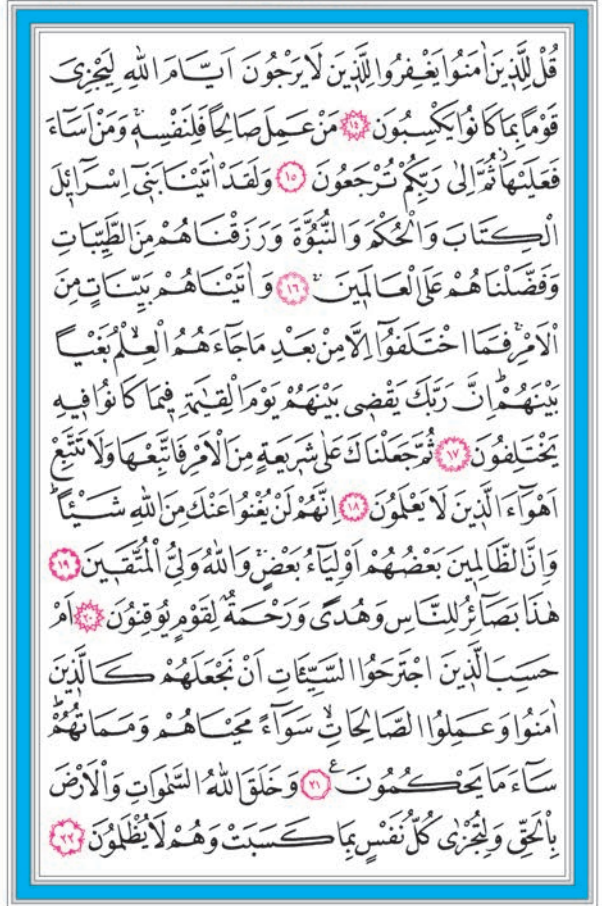 قُلْ لِلَّذِينَ اٰمَنُوا يَغْفِرُوا لِلَّذِينَ لَا يَرْجُونَ اَيَّامَ اللّٰهِ لِيَجْزِىَ
قَوْمًا بِمَا كَانُوا يَكْسِبُونَ ﴿١٤﴾ مَنْ عَمِلَ صَالِحًا فَلِنَفْسِهٖۚ وَمَنْ اَسَٓاءَ
فَعَلَيْهَاۘ ثُمَّ اِلٰى رَبِّكُمْ تُرْجَعُونَ ﴿١٥﴾ وَلَقَدْ اٰتَيْنَا بَنٖٓى اِسْرَٓائٖلَ
الْكِتَابَ وَالْحُكْمَ وَالنُّبُوَّةَ وَرَزَقْنَاهُمْ مِنَ الطَّيِّبَاتِ
وَفَضَّلْنَاهُمْ عَلَى الْعَالَمٖينَۚ ﴿١٦﴾ وَاٰتَيْنَاهُمْ بَيِّنَاتٍ مِنَ
الْاَمْرِۚ فَمَا اخْتَلَفُٓوا اِلَّا مِنْ بَعْدِ مَا جَٓاءَهُمُ الْعِلْمُۙ بَغْيًا
بَيْنَهُمْۜ اِنَّ رَبَّكَ يَقْضٖى بَيْنَهُمْ يَوْمَ الْقِيٰمَةِ فٖيمَا كَانُوا فٖيهِ
يَخْتَلِفُونَ ﴿١٧﴾ ثُمَّ جَعَلْنَاكَ عَلٰى شَرٖيعَةٍ مِنَ الْاَمْرِ فَاتَّبِعْهَا وَلَا تَتَّبِعْ
اَهْوَٓاءَ الَّذٖينَ لَا يَعْلَمُونَ ﴿١٨﴾ اِنَّهُمْ لَنْ يُغْنُوا عَنْكَ مِنَ اللّٰهِ شَيْـًٔاۜ
وَاِنَّ الظَّالِمٖينَ بَعْضُهُمْ اَوْلِيَٓاءُ بَعْضٍۚ وَاللّٰهُ وَلِىُّ الْمُتَّقٖينَ ﴿١٩﴾
هٰذَا بَصَٓائِرُ لِلنَّاسِ وَهُدًى وَرَحْمَةٌ لِقَوْمٍ يُوقِنُونَ ﴿٢٠﴾ اَمْ
حَسِبَ الَّذٖينَ اجْتَرَحُوا السَّيِّـَٔاتِ اَنْ نَجْعَلَهُمْ كَالَّذٖينَ
اٰمَنُوا وَعَمِلُوا الصَّالِحَاتِۙ سَوَٓاءً مَحْيَاهُمْ وَمَمَاتُهُمْۜ
سَٓاءَ مَا يَحْكُمُونَࣖ ﴿٢١﴾ وَخَلَقَ اللّٰهُ السَّمٰوَاتِ وَالْاَرْضَ
بِالْحَقِّ وَلِتُجْزٰى كُلُّ نَفْسٍ بِمَا كَسَبَتْ وَهُمْ لَا يُظْلَمُونَ ﴿٢٢﴾